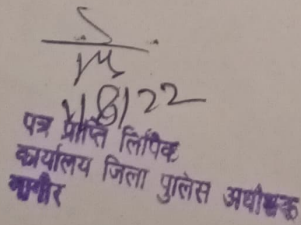 1/8/22
पत्र प्राप्ति लिपिक
कार्यालय जिला पुलिस अधीक्षक
नागौर